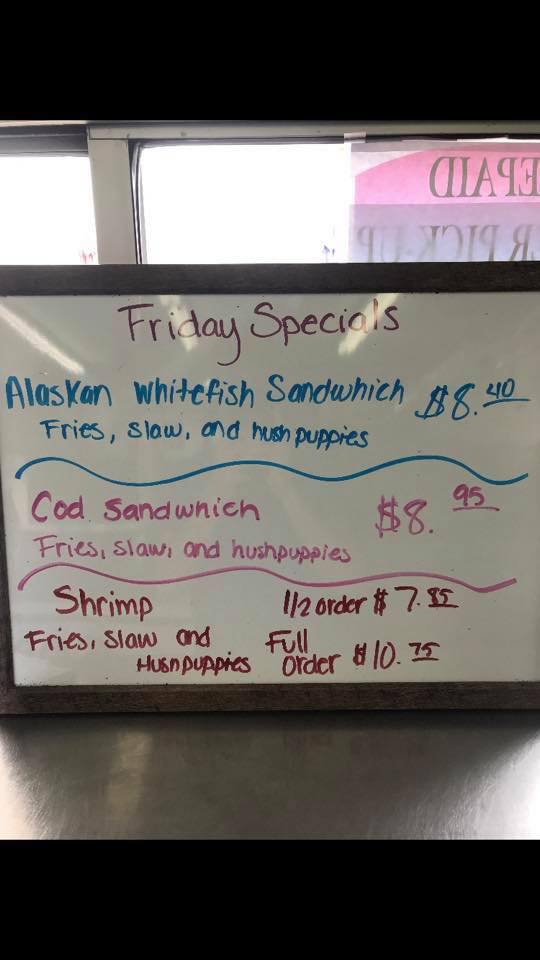 EPAID
R PICK-UP
Friday Specials
Alaskan Whitefish Sandwhich $8.40
Fries, Slaw, and hush puppies
Cod Sandwhich $8.95
Fries, Slaw, and hushpuppies
Shrimp 1/2 order $7.85
Fries, Slaw and Full
Hushpuppies Order $10.75